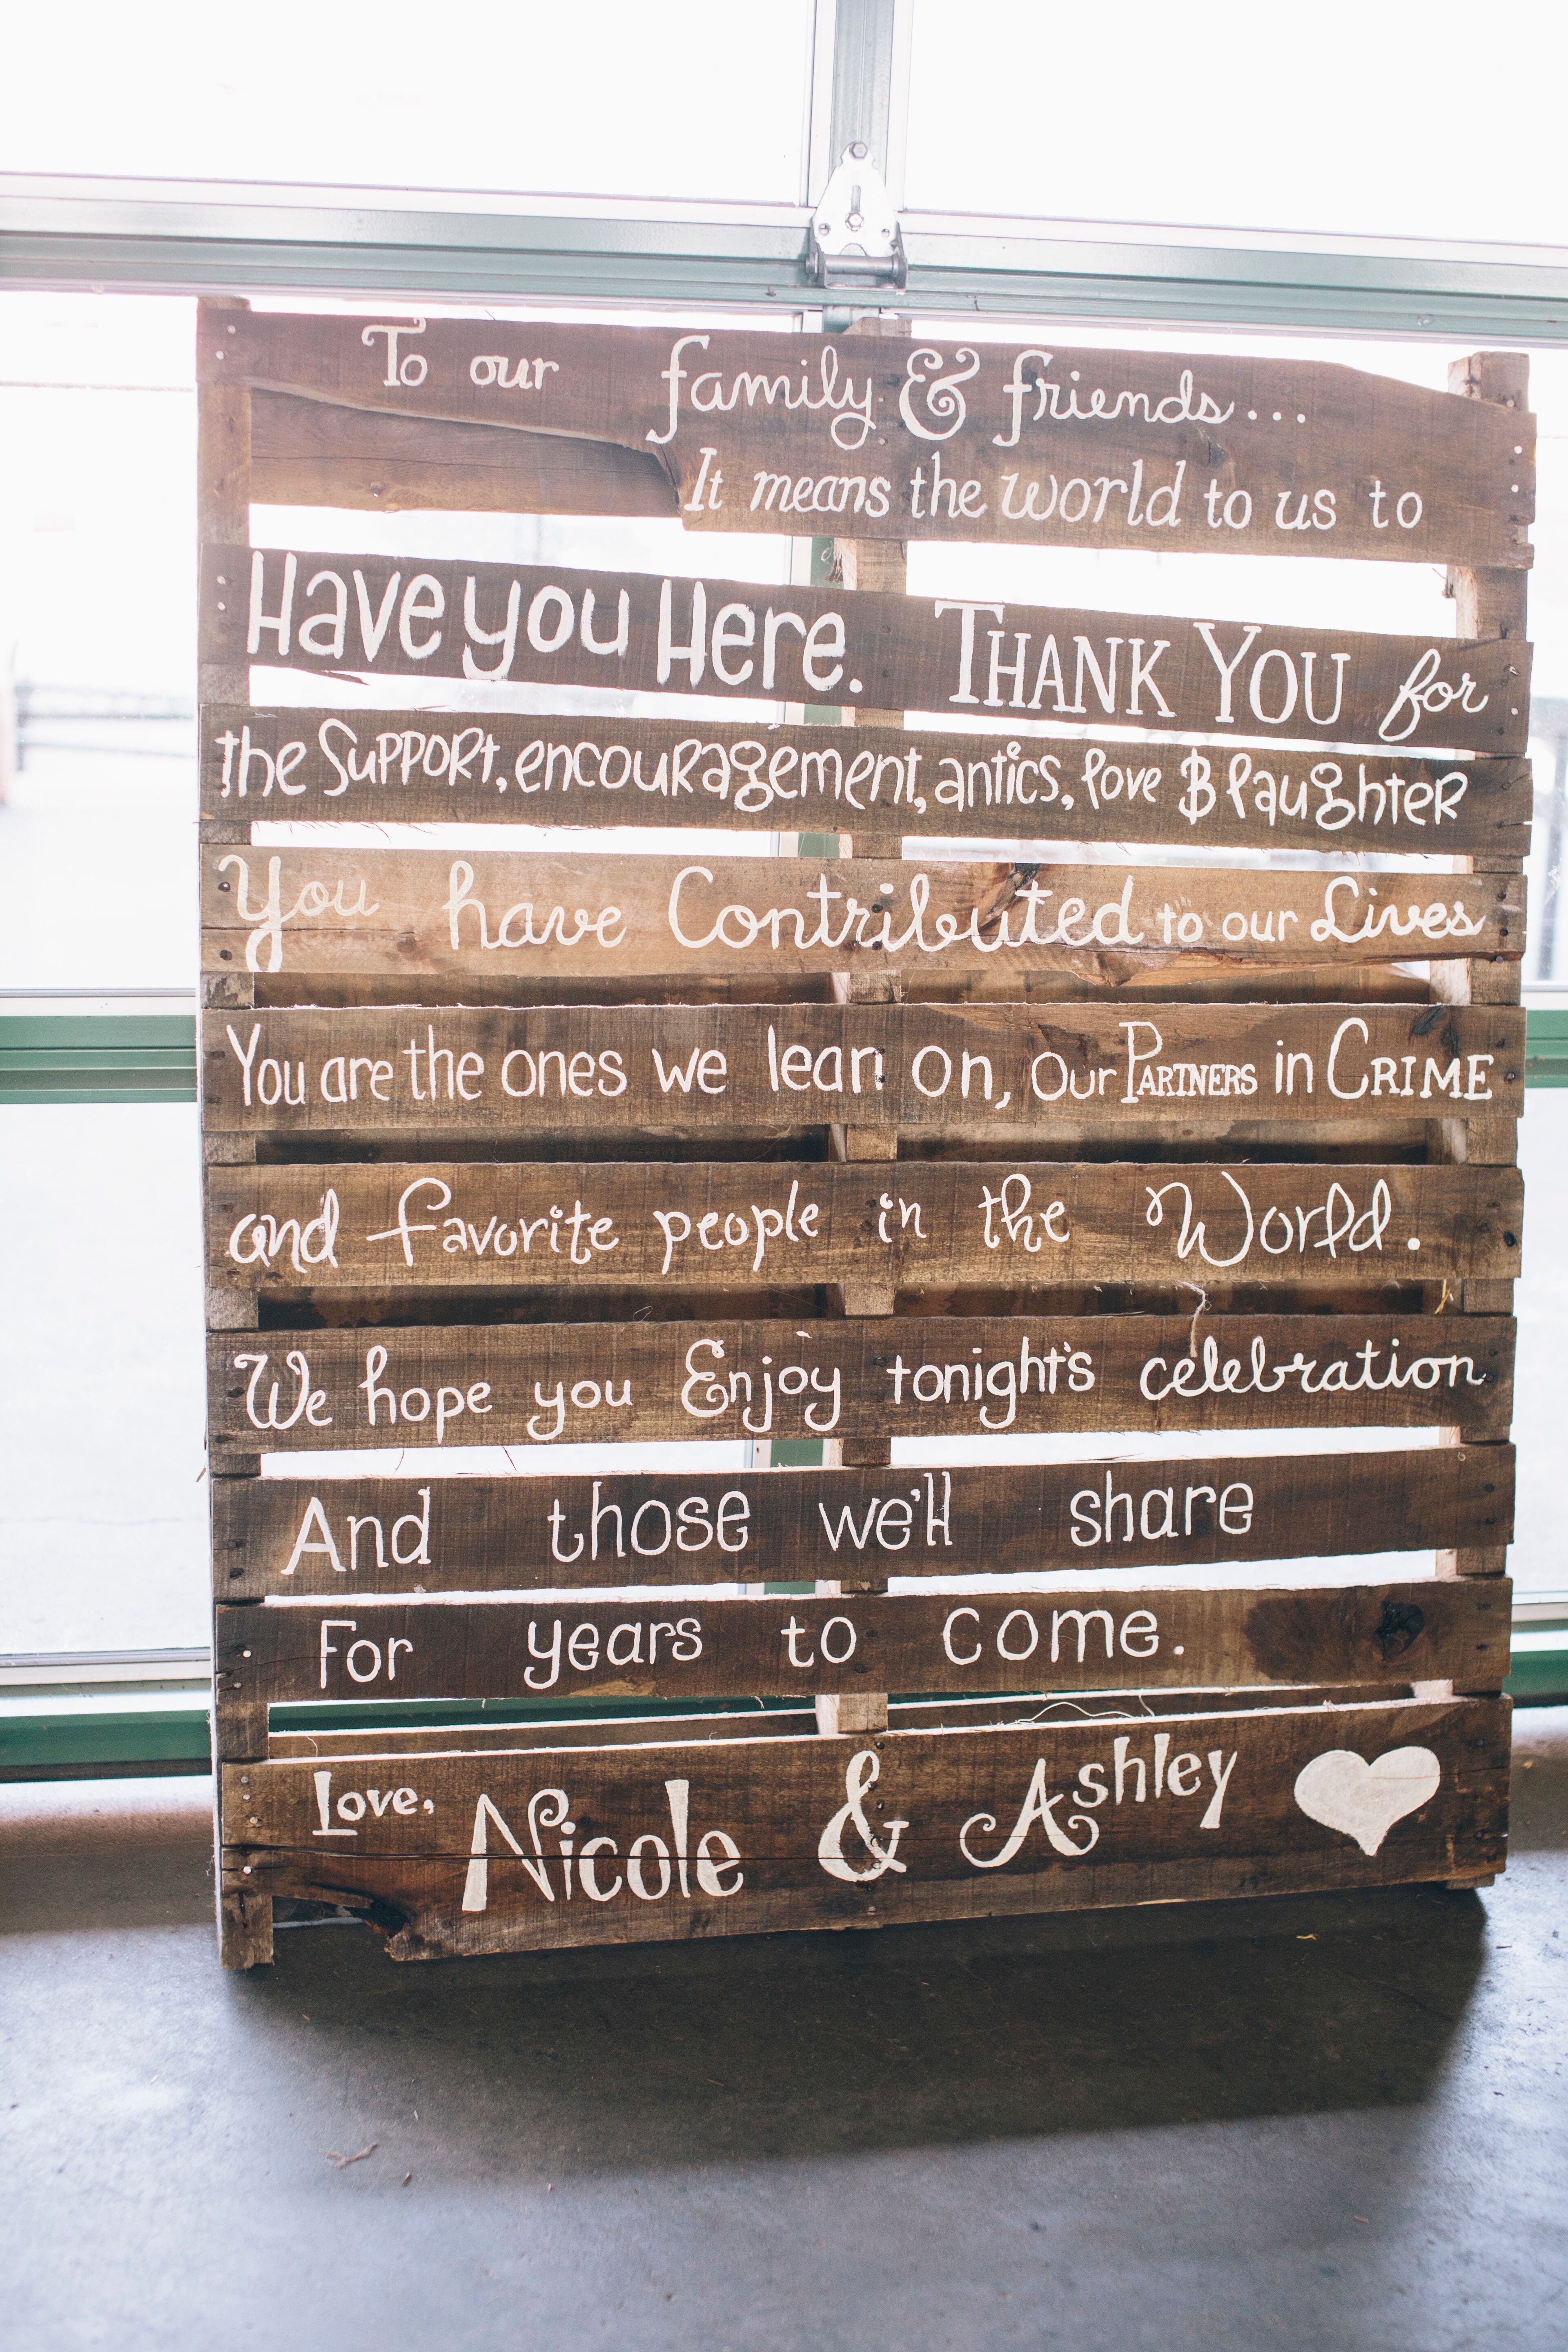 To our family & friends...
It means the world to us to
Have you Here. THANK YOU for
the SuPPORt, encouRagement, antics, love & laughteR
You have Contributed to our Lives
You are the ones we lean on, Our PARTNERS in CRIME
and favorite people in the World.
We hope you Enjoy tonight's celebration
And those we'll share
For years to come.
Love, Nicole & Ashley